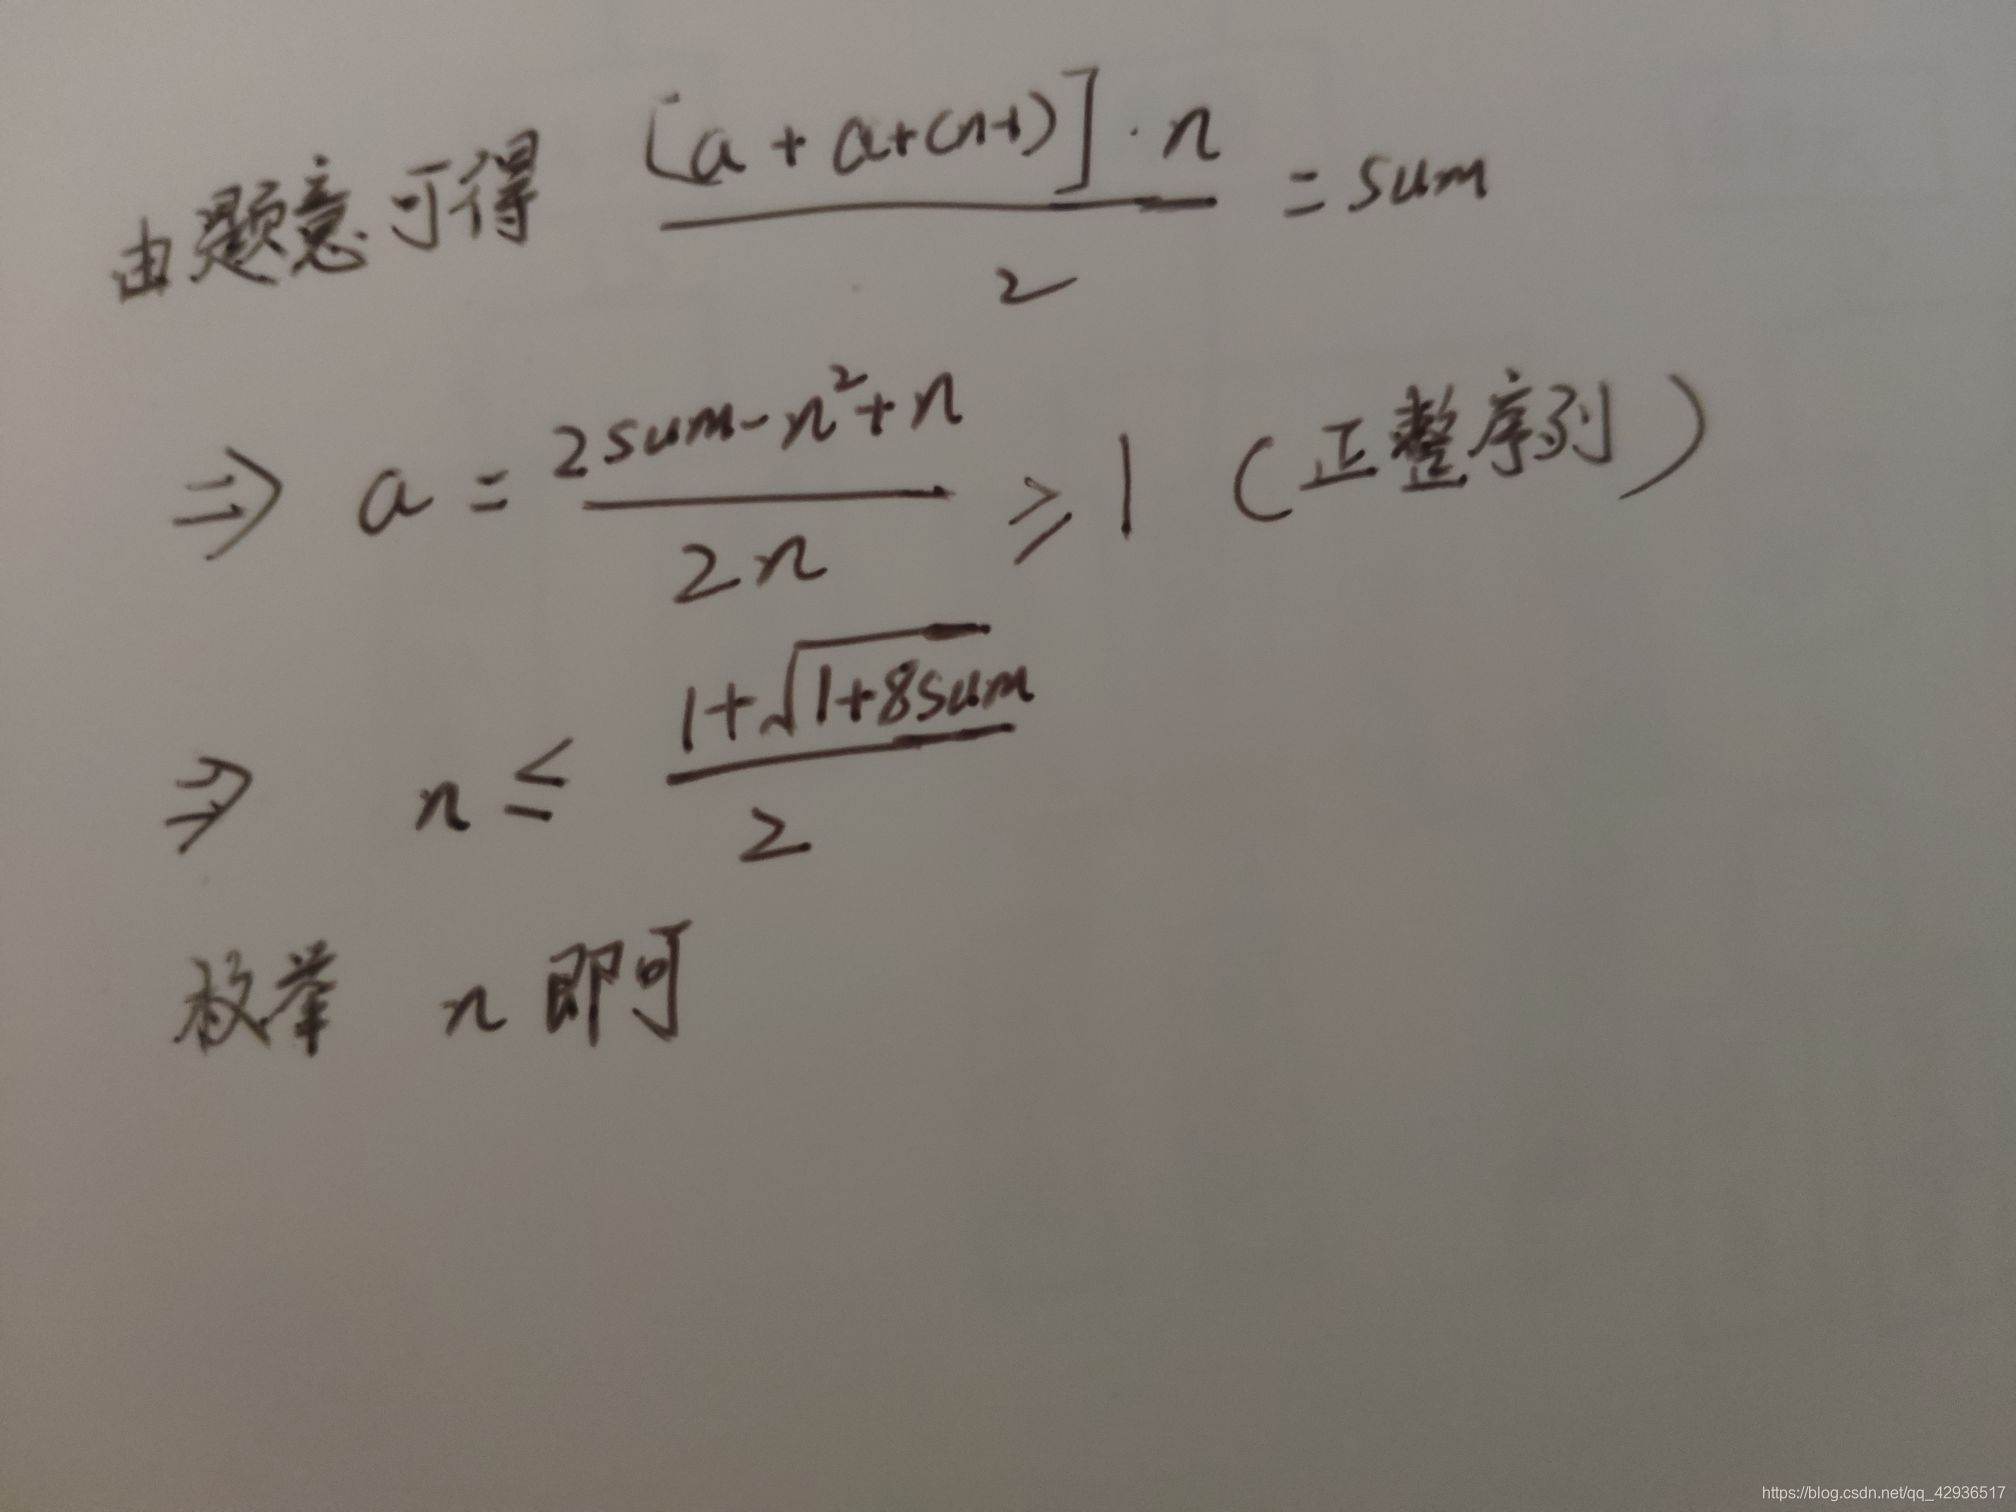 由题意可得 [a + a+(n-1)]·n / 2 = sum
⇒ a = 2sum-n²+n / 2n ≥ 1 (正整序列)
⇒ n ≤ 1+√1+8sum / 2
枚举 n 即可
https://blog.csdn.net/qq_42936517